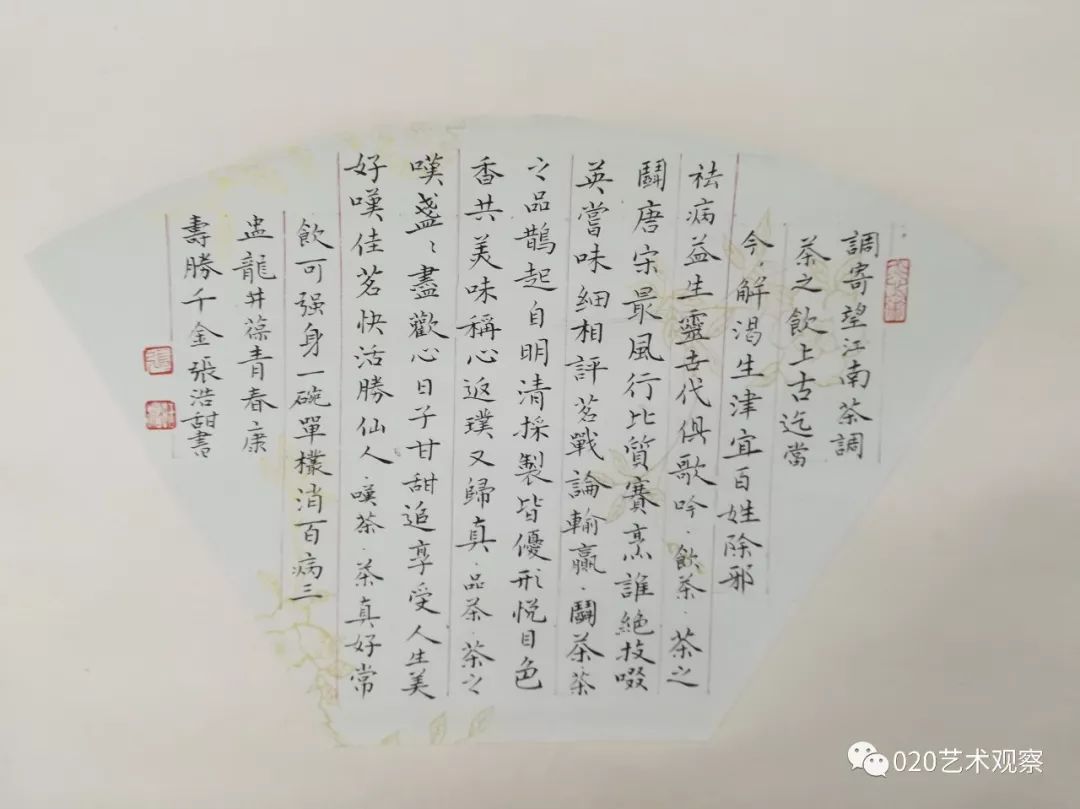 調寄望江南茶調
茶之飲上古迄當
今·解渴生津宜百姓除邪
祛病益生靈古代俱歌吟·飲茶·茶之
鬪唐宋最風行比質賽烹誰絕技啜
英嘗味細相評茗戰論輸贏·鬪茶·茶
之品鵲起自明清採製皆優形悅目色
香共美味稱心返璞又歸真·品茶·茶之
嘆盞〻盡歡心日子甘甜追享受人生美
好嘆佳茗快活勝仙人·嘆茶·茶真好常
飲可强身一碗單欉消百病三
盅龍井葆青春康
壽勝千金張浩甜書
020艺术观察